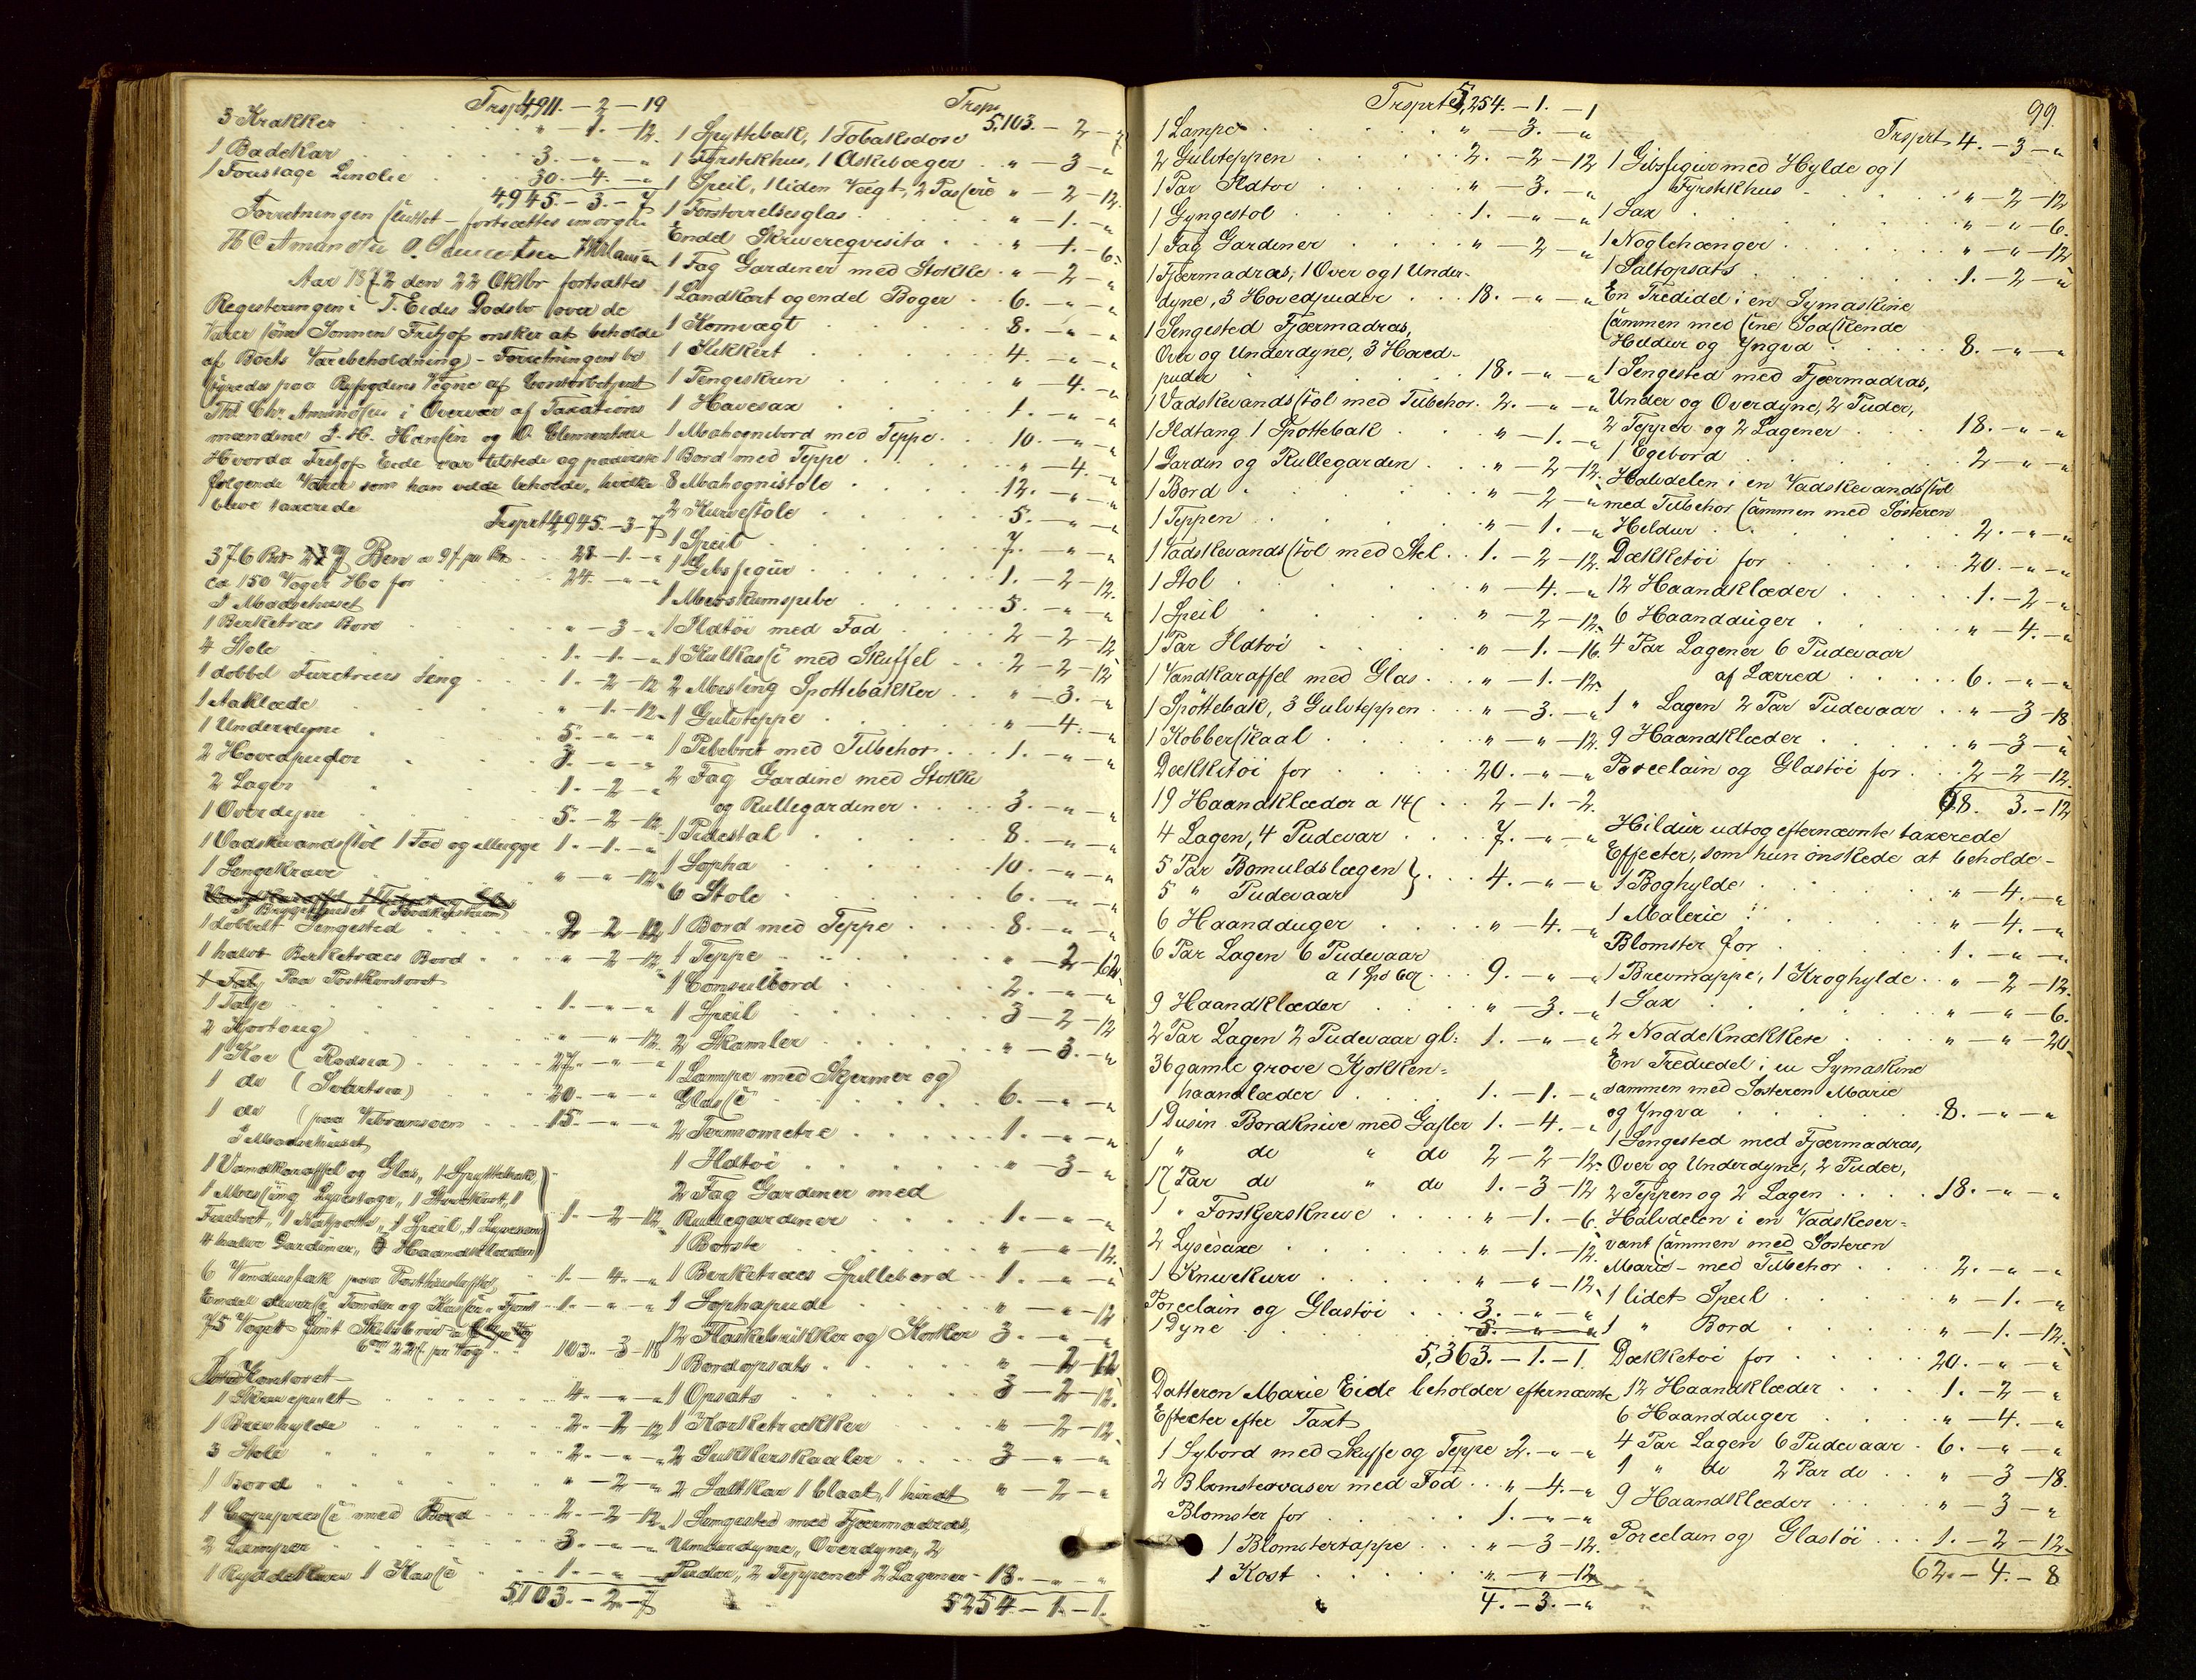 Trspt 4,911. – 2 – 19
3 Krakker . . . " – 1. – 12.
1 Badekar . . . 3. – " – "
1 Foustage Linolie . . . 30. – 4. – "
4,945. – 3. – 7
Forretningen sluttet – fortsættes imorgen
Aar 1872 den 22 Oktbr fortsattes
Registeringen i T. Eides Dødsbo over de
Varer som Sønnen Fritjof ønsker at beholde
af Boets Varebeholdning – Forretningen be
styredes paa Byfogdens Vegne af Contorbetjent
Th. Chr. Amundsen i Overvær af Taxations
mændene J. H. Hansen og O. Clementsen
Hvorda Fritjof Eide var tilstede og paaviste
følgende Varer som han vilde beholde, hvilke
bleve taxerede
Trsprt 4,945. – 3 – 7
376 Pd Ben a 9 f pr
ca 150 Voger Hø for . . . 24. – " – "
I Madbehuset
1 Berketræs Bord . . . " – 3 – "
4 Stole . . . 1. – 1. – "
1 dobbel Furetræes Seng . . . 1. – 2 – 12
1 Aaklæde . . . " – 1 – 12.
1 Underdyne . . . 5. – " – "
2 Hovedpuder . . . 3. – " – "
2 Lagen . . . 1. – 2 – "
1 Overdyne . . . 5. – 2 – 12
1 Vadskevandsstol 1 Fad og Mugge 1. – 1. – "
1 Sengekrave . . . " – " – 12.
I Bryggehuset
1 dobbelt Sengested . . . 2 – 2 – 12
1 halvt Berketræes Bord . . . " – 2 – 12.
Paa Postkontoret
1 Talje . . . 1. – " – "
2 Hjortoug . . . " – " – 12.
1 Koe (Rødsia) . . . 27. – " – "
1 do (Svartsia) . . . 20. – " – "
1 do (paa Vibramoen . . . 15. – " – "
I Madbehuset
1 Vandkaraffel og Glas, 1 Spyttebakk
1 Messing Lysestage, 1
1 Speil, 1 Lysesax
4 halve Gardiner, Haandklæder . . . 1. – 2 – 12.
6 . . . 1. – 4. – "
Endel diverse Tønder og Kasser . . . 1. – " – "
75 Voger
103. – 3 – 18
Kontoret
1 Skrivepult . . . 4. – " – "
1 Brevhylde . . . 2. – 2 – 12
3 Stole . . . 2. – " – "
1 Bord . . . " – 2 – "
1 Copipresse med Bord . . . 2. – 2 – 12.
2 Lamper . . . 3. – " – "
1 1 Kasse . . . 1. – " – "
5,103. – 2 – 7
Trspt 5,103. – 2 – 7
1 Spyttebak, 1 Tobaksdose
1 Fyrstikhus, 1 Askebæger . . " – 3 – "
1 Speil, 1 liden Vægt, 2 Passere " – 2 – 12.
1 Forstørrelsesglas . . . " – 1. – "
Endel Skriverequisita . . . " – 1. – 6.
1 Fag Gardiner med Stokke . . " – 2 – "
1 Landkart og endel Bøger . . 6. – " – "
1 Kornvægt . . . 8. – " – "
1 Kikkert . . . 4. – " – "
1 Pengeskrin . . . " – 4. – "
1 Havesax . . . 1. – " – "
1 Mahognibord med Teppe . . . 10. – " – "
1 Bord med Teppe . . . " – 4. – "
8 Mahognistole . . . 12. – " – "
2 Kurvestole . . . 5. – " – "
1 Speil . . . 7. – " – "
1 Gibsfigur . . . 1. – 2 – 12.
1 Merskumspibe . . . 5. – " – "
1 Ildtøi med Fad . . . 2 – 2 – 12
1 Kulkasse med Skuffel . . . 2 – 2 – 12
2 Messing Spøttebakker . . " – 3. – "
1 Gulvteppe . . . " – 4. – "
1 Pibebret med Tilbehør . . . 1. – " – "
2 Fag Gardine med Stokke
og Rullegardiner . . . 3. – " – "
1 Pidestal . . . 8. – " – "
1 Sopha . . . 10. – " – "
6 Stole . . . 6. – " – "
1 Bord med Teppe . . . 8. – " – "
1 Teppe . . . " – 2 – 12.
1 Consulbord . . . 2. – " – "
1 Speil . . . 3 – 2 – 12
2 Skamler . . . " – 3. – "
1 Lampe med Skjermer og
Glasse . . . 6. – " – "
2 Termometre . . . 1. – " – "
1 Ildtøi . . . " – 3 – "
2 Fag Gardiner med
Rullegardiner . . . 1. – " – "
1 Børste . . . " – " – 12.
1 Berketræes Spillebord . . 1. – " – "
1 Sophapude . . . " – " – 12
12 Flaskebrikker og Korker 3. – " – "
1 Bordopsats . . . " – 2 – 12
1 Opsats . . . 3 – 2 – 12.
1 Korketrækker . . . " – 2 – 12
2 Sukkerskaaler . . . 3 – " – "
2 Saltkar 1 blaat, 1 hvidt " – 2 – "
1 Sengested med Fjærmadras,
Underdyne, Overdyne, 2
Puder, 2 Tepper et 2 Lagener – 18. – " – "
5254. – 1. – 1.
Trsprtes 5,254. – 1. – 1
1 Lampe . . . " – 3. – "
2 Gulvteppen . . . 2. – 2 – 12
1 Par Ildtøi . . . " – 3. – "
1 Gyngestol . . . 1. – " – "
1 Fag Gardiner . . . " – 2 – "
1 Fjærmadras, 1 Over og 1 Under-
dyne, 3 Hovedpuder . . . 18. – " – "
1 Sengested Fjærmadras,
Over og Underdyne, 3 Hoved-
puder . . . 18. – " – "
1 Vadskevandsstol med Tilbehør. 2. – " – "
1 Ildtang 1 Spøttebak . . . " – 1. – "
1 Gardin og Rullegardin . . . " – 2 – 12.
1 Bord . . . " – 2 – "
1 Teppen . . . " – 1. – "
1 Vadskevandsstol med Stel . . 1. – 2 – 12.
1 Stol . . . " – 4. – "
1 Speil . . . " – 2 – 12.
1 Par Ildtøi . . . " – 1. – 16.
1 Vandkaraffel med Glas . . . " – 1. – 12.
1 Spøttebak, 3 Gulvteppen . . " – 3. – "
1 Kobberskaal . . . " – " – 12.
Dækketøi for . . . 20. – " – "
19 Haandklæder a 14 s . . 2 – 1. – 2.
4 Lagen, 4 Pudevar . . . 7. – " – "
5 Par Bomuldslagen }
5 " Pudevaar } . . . 4. – " – "
6 Haandduger . . . " – 4. – "
6 Par Lagen 6 Pudevaar
a 1 Spd . . . 9. – " – "
9 Haandklæder . . . " – 3. – "
2 Par Lagen 2 Pudevaar gl: 1. – " – "
36 gamle grove Kjøkken=
haandlæder . . . 1. – 1. – "
1 Dusin Bordknive med Gafler 1. – 4. – "
1 " do " do 2 – 2 – 12.
17 Par do " do 1. – 3 – 12
1 " Forskjersknive . . . " – 1. – 6.
2 Lysesaxe . . . " – 1. – 12.
1 Knivekurv . . . " – " – 12.
Porcelain og Glastøi . . . 3. – " – "
1 Dyne . . . 5. – " – "
5,363. – 1. – 1.
Datteren Marie Eide beholder efternævnte
Effecter efter Taxt
1 Sybord med Skuffe og Teppe 2. – " – "
2 Blomstervaser med Fod . . " – 4. – "
Blomster for . . . 1. – " – "
1 Blomstertappe . . . " – 3 – 12.
1 Kost . . . " – " – 12
4. – 3. – "
99.
Trsprt 4. – 3 – "
1 Gibsfigur med Hylde og 1
Fyrstikhus . . . " – 2 – 12
1 Sax . . . " – " – 6.
1 Nøglehænger . . . " – " – 12
1 Saltopsats . . . 1. – 2 – "
En Tredidel i en Symaskine
sammen med sine Sødskende
Hildur og Yngva . . . 8. – " – "
1 Sengested med Fjærmadras,
Under og Overdyne, 2 Puder,
2 Tepper og 2 Lagener . . . 18. – " – "
1 Egebord . . . 2 – " – "
Halvdelen i en Vadskevandsstol
med Tilbehør sammen med Søsteren
Hildur . . . 2. – " – "
Dækketøi for . . . 20. – " – "
12 Haandklæder . . . 1. – 2 – "
6 Haandduger . . . " – 4. – "
4 Par Lagener 6 Pudevaar
af Lærred . . . 6. – " – "
1 " Lagen 2 Par Pudevaar . . " – 3 – 18.
9 Haandklæder . . . " – 3 – "
Porcelain og Glastøi for . . 2 – 2 – 12.
68. 3. – 12
Hildur udtog efternævnte taxerede
Effecter, som hun ønskede at beholde –
1 Boghylde . . . " – 4. – "
1 Malerie . . . " – 4. – "
Blomster for . . . 1. – " – "
1 Brevmappe, 1 Kroghylde . . " – 2 – 12.
1 Sax . . . " – " – 6.
2 Nøddeknækkere . . . " – " – 20
En Trediedel i en Symaskine
sammen med Søsteren Marie
og Yngva . . . 8. – " – "
1 Sengested med Fjærmadras,
Over og Underdyne, 2 Puder,
2 Teppen og 2 Lagen . . . 18. – " – "
Halvdelen i en Vadskeser=
vant sammen med Søsteren
Marie – med Tilbehør . . . 2. – " – "
1 lidet Speil . . . " – 1. – "
1 " Bord . . . " – 1. – 12.
Dækketøi for . . . 20. – " – "
12 Haandklæder . . . 1. – 2 – "
6 Haandduger . . . " – 4. – "
4 Par Lagen 6 Pudevaar . 6. – " – "
1 " do 2 Par do . . " – 3 – 18.
9 Haandklæder . . . " – 3 – "
Porcelain og Glastøi . . . 1. – 2 – 12.
62. – 4. – 8